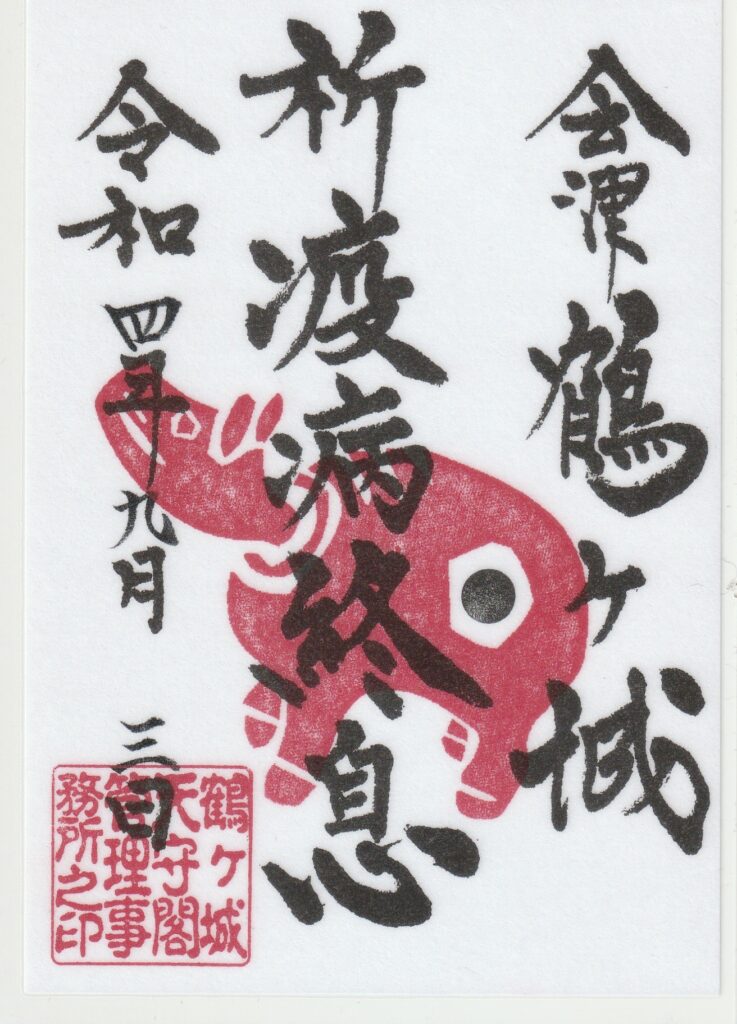 会津鶴ヶ城
祈疫病終息
令和四年九月三日
鶴ヶ城
天守閣
管理事
務所之印